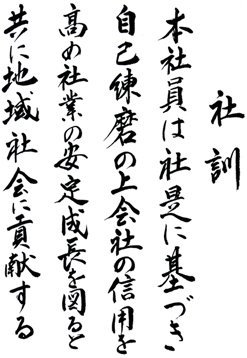 社訓
本社員は社是に基づき
自己練磨の上会社の信用を
高め社業の安定成長を図ると
共に地域社会に貢献する